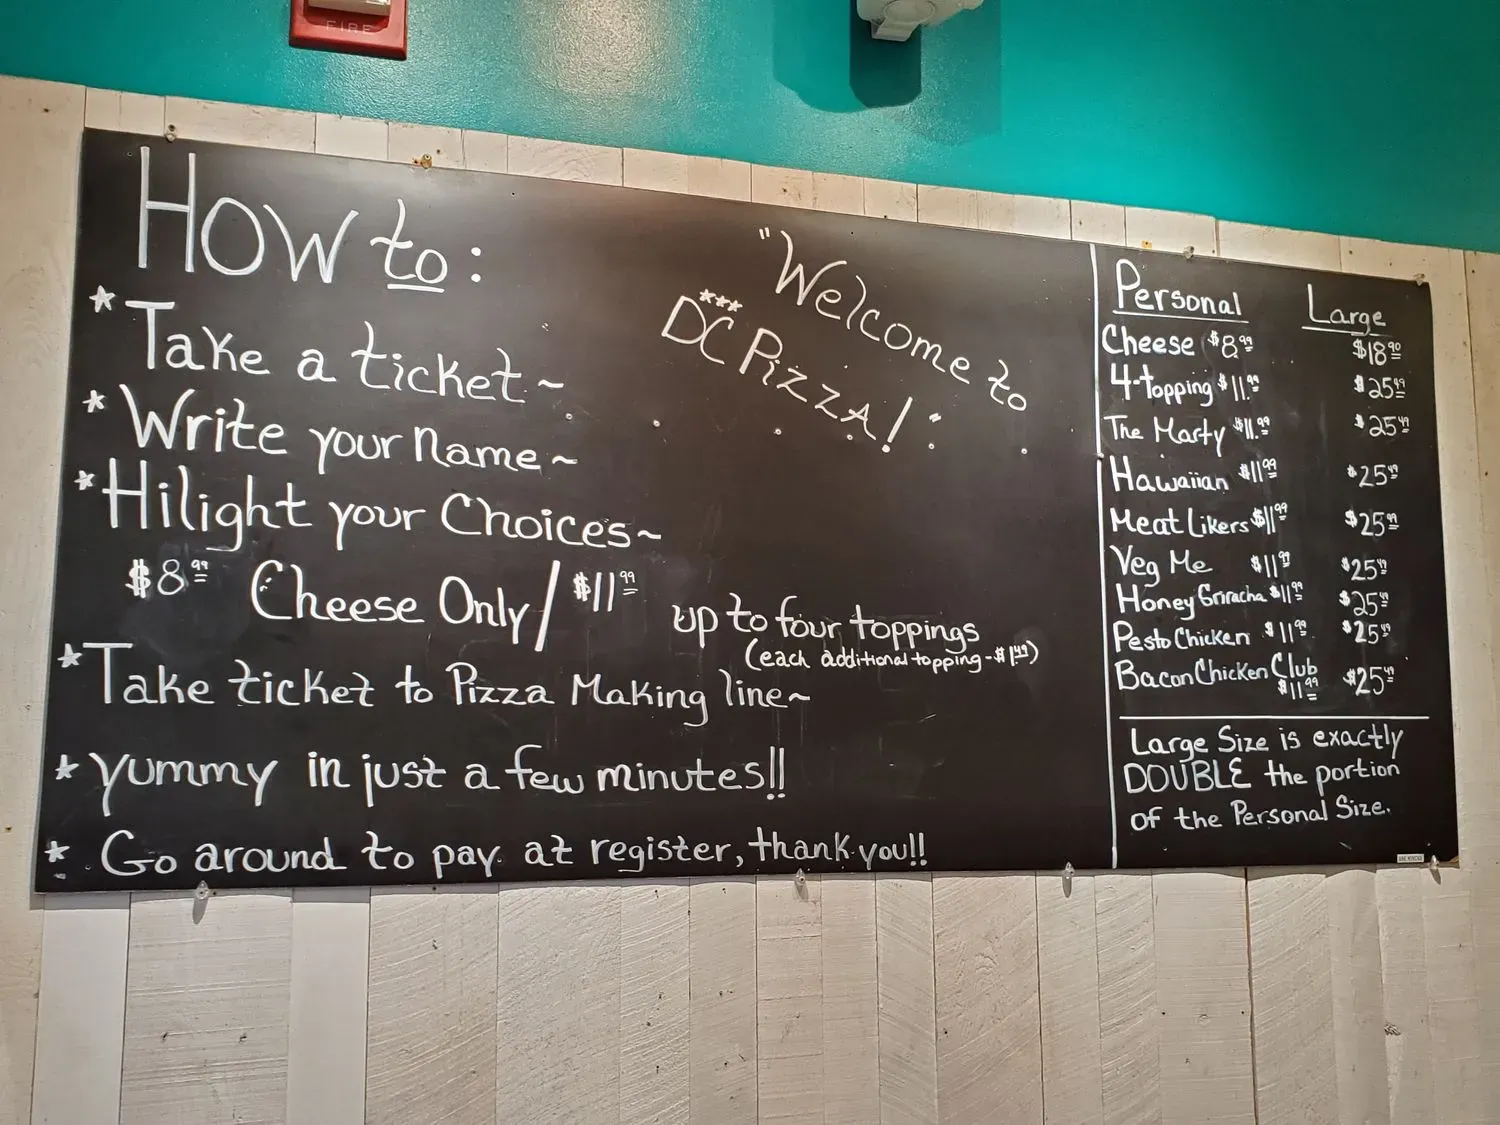 FIRE
HOW to:
* Take a ticket ~
* Write your name ~
* Hilight your Choices ~
$8.99 Cheese Only / $11.99 up to four toppings
(each additional topping - $1.49)
* Take ticket to Pizza Making line ~
* yummy in just a few minutes!!
* Go around to pay at register, thank you!!
"Welcome to
*** DC Pizza!"
Personal Large
Cheese $8.99 $18.90
4-topping $11.99 $25.49
The Marty $11.99 $25.49
Hawaiian $11.99 $25.49
Meat Likers $11.99 $25.49
Veg Me $11.99 $25.49
Honey Griracha $11.99 $25.49
Pesto Chicken $11.99 $25.49
Bacon Chicken Club
$11.99 $25.49
Large Size is exactly
DOUBLE the portion
of the Personal Size.